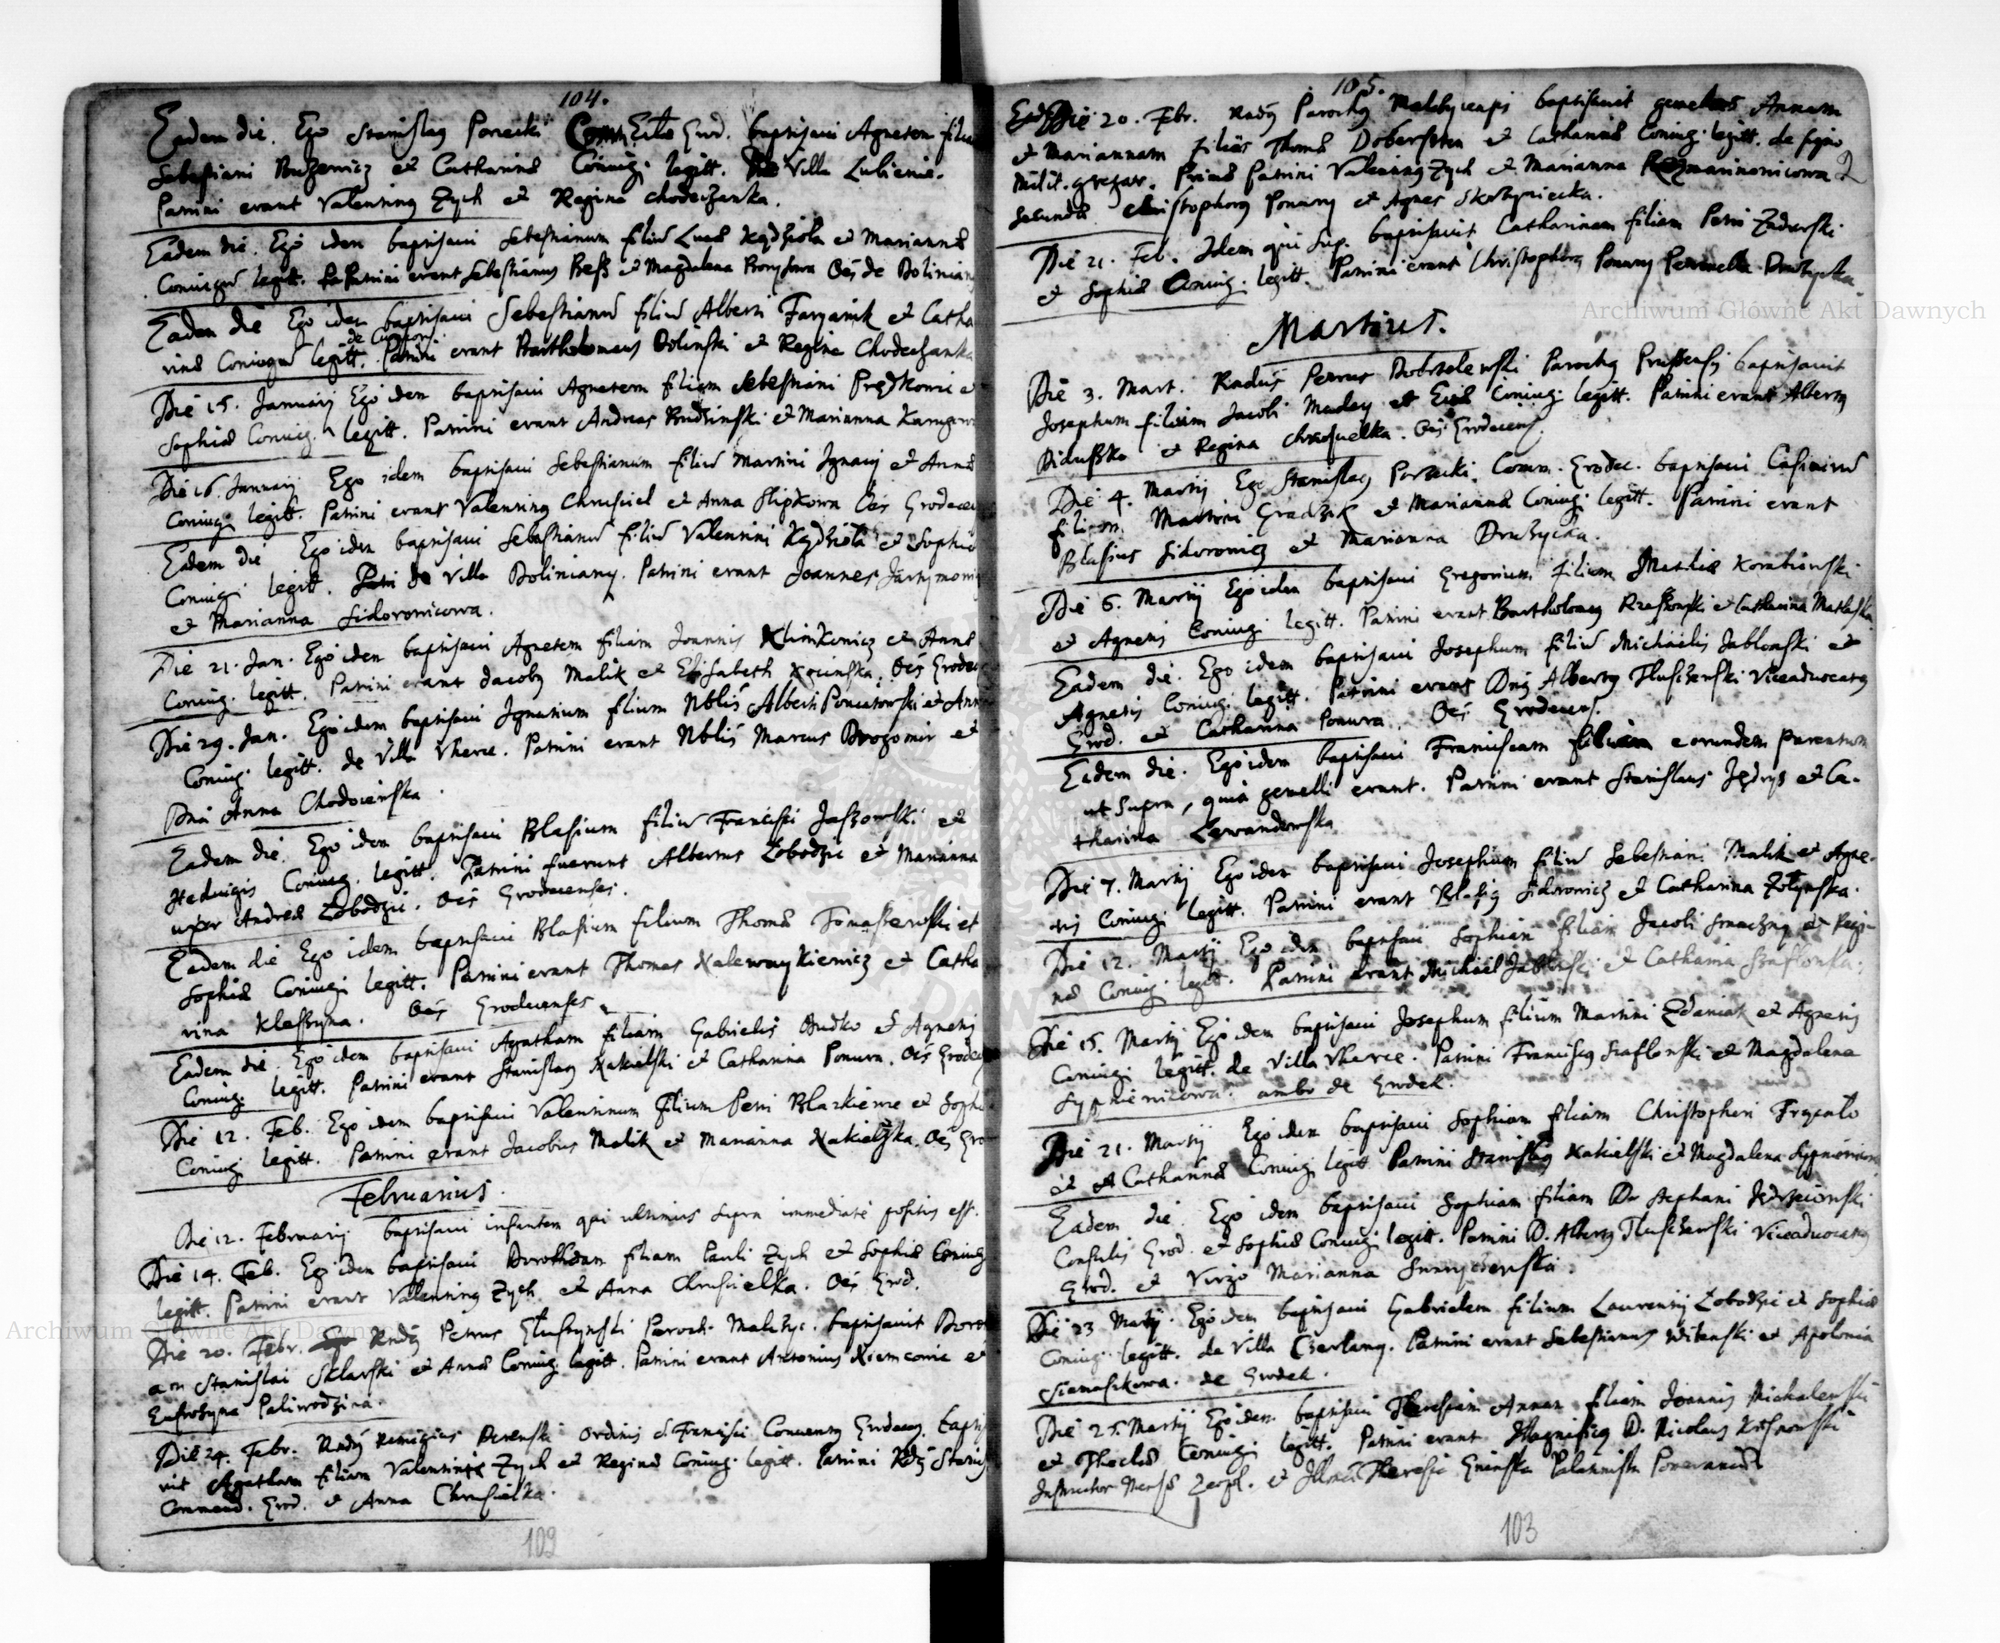 104.
Eadem die. Ego Stanislaus Porecki Com. Eccl. Grod. baptisavi Agnetem filiam
Sebestiani et Catharinæ Coniug. legitt. Villa Lubienie.
Patrini erant Valentinus Zych et Regina Chodeczanka.
Eadem die. Ego idem baptisavi Sebestianum filiū Lucæ Kądziola et Mariannæ
Coniugū legitt. Patrini erant Sebestianus Bess et Magdalena Borysowa Oēs de Dolinian
Eadem die Ego idem baptisavi Sebestianū filiū Alberti Farganik et Catha
de
rinæ Coniugū legitt. Patrini erant Bartholomeus Dolinski et Regina Chodeczanka
Die 15. Januarij Ego idem baptisavi Agnetem filiam Sebestiani Prędkowic e
Sophiæ Coniug. legitt. Patrini erant Andreas Rudzinski et Marianna
Die 16. Januarij Ego idem baptisavi Sebestianum filiū Martini Ignacij et Annæ
Coniug. legitt. Patrini erant Valentinus Chrusciel et Anna Slipkowa Oēs Grodecen
Eadem die Ego idem baptisavi Sebastianū filiū Valentini Kądziola et Sophiæ
Coniugi legitt. de Villa Doliniany. Patrini erant Joannes Jartymowi
et Marianna Sidorowicowa.
Die 21. Jan. Ego idem baptisavi Agnetem filiam Joannis Klimkowicz et Annæ
Coniug. legitt. Patrini erant Jacobus Malik et Elisabeth Kocinska. Oēs Grodec
Die 29. Jan. Ego idem baptisavi Ignatium filium Nblis Alberti Poniatowski et Ann
Coniug. legitt. de Villa Vherce. Patrini erant Nblis Marcus Drogomir et
Dna Anna Chodocinska.
Eadem die. Ego idem baptisavi Blasium filiū Francisci Jaszowski et
Hedvigis Coniug. legitt. Patrini fuerunt Albertus Zobodzic et Marianna
uxor Andreæ Zobodzic. Oēs Grodecenses.
Eadem die Ego idem baptisavi Blasium filium Thomæ Tomaszewski et
Sophiæ Coniugi legitt. Patrini erant Thomas Kalewaykiewicz et Catha
rina Kleszyna. Oēs Grodecenses
Eadem die. Ego idem baptisavi Agatham filiam Gabrielis Dudko et Agnetis
Coniug. legitt. Patrini erant Stanislaus Kakielski et Catharina Ponura. Oēs Grodec
Die 12. Feb. Ego idem baptisavi Valentinum filium Petri Blazkiewic et Sophi
Coniug. legitt. Patrini erant Jacobus Malik et Marianna Kakielska. Oēs Gro
Februarius.
Die 12. Februarij baptisavi infantem qui ultimus supra immediate positus est.
Die 14. Feb. Ego idem baptisavi Dorotheam filiam Pauli Zych et Sophiæ Coniug
legitt. Patrini erant Valentinus Zych et Anna Chrusielka. Oēs Grod.
Die 20. Febr. Rndus Petrus Parochus baptisavit Doro
am Stanislai Sklarski et Annæ Coniug. legitt. Patrini erant Antonius Niemcowic et
Eufrozyna Paliwodzina.
Die 24. Febr. Rndus Remigius Derenski ordinis S. Francisci Conventus Grodecen. bapti
vit Agatham filiam Valentini Zych et Reginæ Coniug. legitt. Patrini Rdus Stanis
Commend. Grod. et Anna Chrusielka.
102
105.
Die 20. Febr. Rndus Parochus baptisavit gemellas Annam
et Mariannam filias Thomæ et Catharinæ Coniug. legitt. de
Milit. gregar. Primæ Patrini Valentinus Zych et Marianna
Secundæ Christophorus Ponury et Agnes Skobyniecka.
Die 21. Feb. Idem qui Sup. baptisavit Catharinam filiam Petri Zadurski
et Sophiæ Coniug. legitt. Patrini erant Christophorus Ponury Petronella
Martius.
Die 3. Mart. Rndus Petrus Parochus baptisavit
Josephum filium Jacobi Maday et Evæ Coniug. legitt. Patrini erant Albertus
Didusko et Regina Oēs Grodecens.
Die 4. Martij Ego Stanislaus Porecki Comm. Grodec. baptisavi Casimirū
filium Martini Gradzik et Mariannæ Coniug. legitt. Patrini erant
Blasius Sidorowicz et Marianna Druzycka.
Die 6. Martij Ego idem baptisavi Gregorium filium Mathiæ Korabiowski
et Agnetis Coniug. legitt. Patrini erant Bartholomeus et Catharina
Eadem die. Ego idem baptisavi Josephum filiū Michaelis Jablonski et
Agnetis Coniug. legitt. Patrini erant Dnus Albertus Tluszczewski Viceadvocatus
Grod. et Catharina Ponura. Oēs Grodecens.
Eadem die. Ego idem baptisavi Franciscam filiam eorundem parentum
ut supra, quia gemelli erant. Patrini erant Stanislaus Jędrys et Ca-
tharina Lewandowska
Die 7. Martij Ego idem baptisavi Josephum filiū Sebestiani Malik et Agne-
tis Coniug. legitt. Patrini erant Blasius Sidorowicz et Catharina Zolynska.
Die 12. Martij Ego idem baptisavi Sophiam filiam Jacobi Smaczny et Regi-
næ Coniug. legitt. Patrini erant Michael Jablonski et Catharina Szaflonka.
Die 15. Martij Ego idem baptisavi Josephum filium Martini Zdaniak et Agnetis
Coniugi legitt. de Villa Vherce. Patrini Franciscus Szaflonski et Magdalena
Sypniewicowa ambo de Grodek.
Die 21. Martij Ego idem baptisavi Sophiam filiam Christophori
et Catharinæ Coniug legitt Patrini Stanislaus Kakielski et Magdalena
Eadem die. Ego idem baptisavi Sophiam filiam Dni Stephani
Consulis Grod. et Sophiæ Coniug. legitt. Patrini D. Albertus Tluszczewski Viceadvocatus
Grod. et Virgo Marianna
Die 23 Martij. Ego idem baptisavi Gabrielem filium Laurentij Zobodzic et Sophiæ
Coniug. legitt. de Villa Czerlany. Patrini erant Sebestianus Witenski et Apolonia
Sienaszkowa. de Grodek.
Die 25. Martij Ego idem baptisavi Theresiam Annam filiam Joannis Michalewski
et Theclæ Coniugi legitt. Patrini erant Magnificus D. Nicolaus
Instructor et Theresia
103
Archiwum Główne Akt Dawnych
Archiwum Główne Akt Dawnych